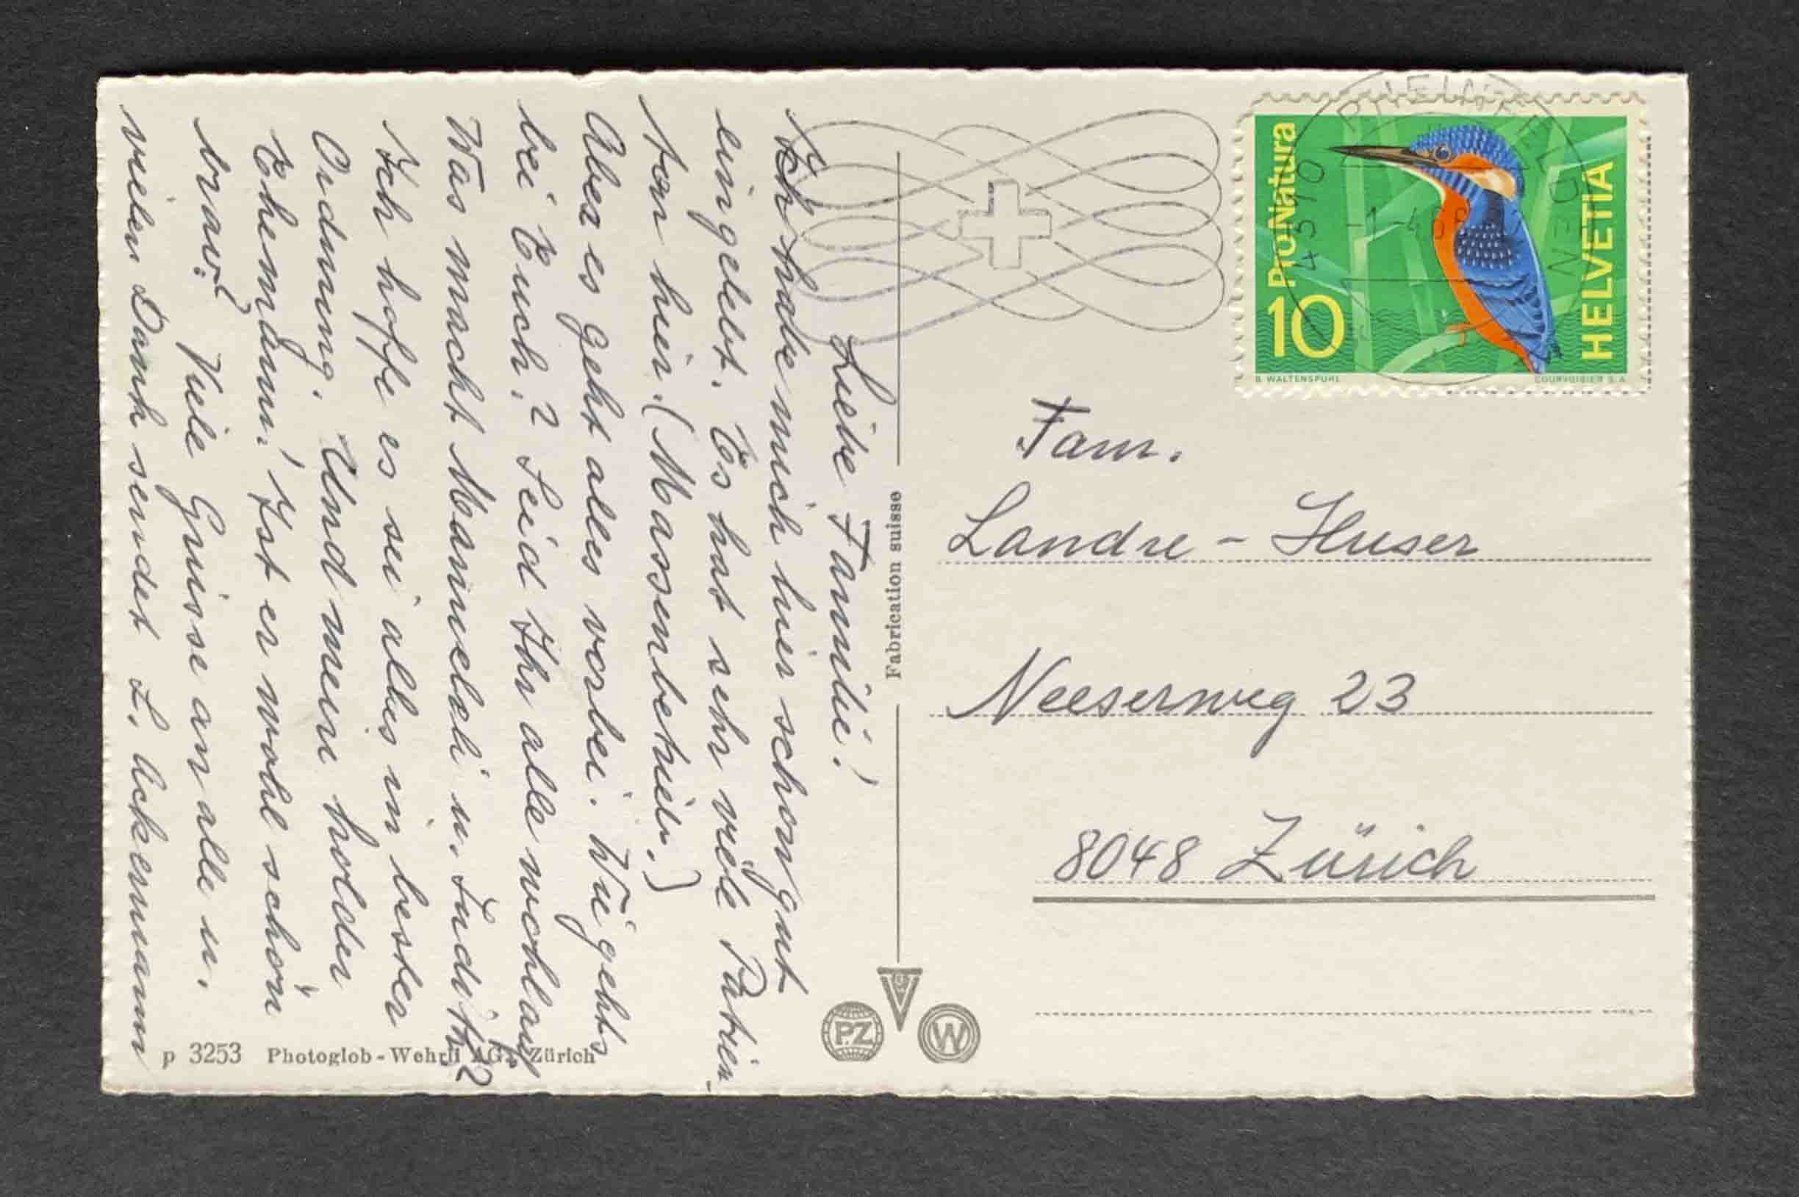 Liebe Familie!
Ich habe mich hier schon gut
eingelebt. Es hat sehr viele Patien-
ten hier. (Massenbetrieb.)
Aber es geht alles vorbei. Wie gehts
bei Euch? Seid Ihr alle wohlauf?
Was macht Manueli u. Judith?
Ich hoffe es sei alles in bester
Ordnung. Und mein holder
Ehemann! Ist er wohl schön
brav? Viele Grüsse an alle u.
vielen Dank sendet L. Ackermann
Fabrication suisse
p 3253 Photoglob-Wehrli AG., Zürich
PZ
W
4310 RHEINFELDEN
ProNatura
10
HELVETIA
B. WALTENSPÜHL
COURVOISIER S.A.
Fam.
Landre - Huser
Neeserweg 23
8048 Zürich